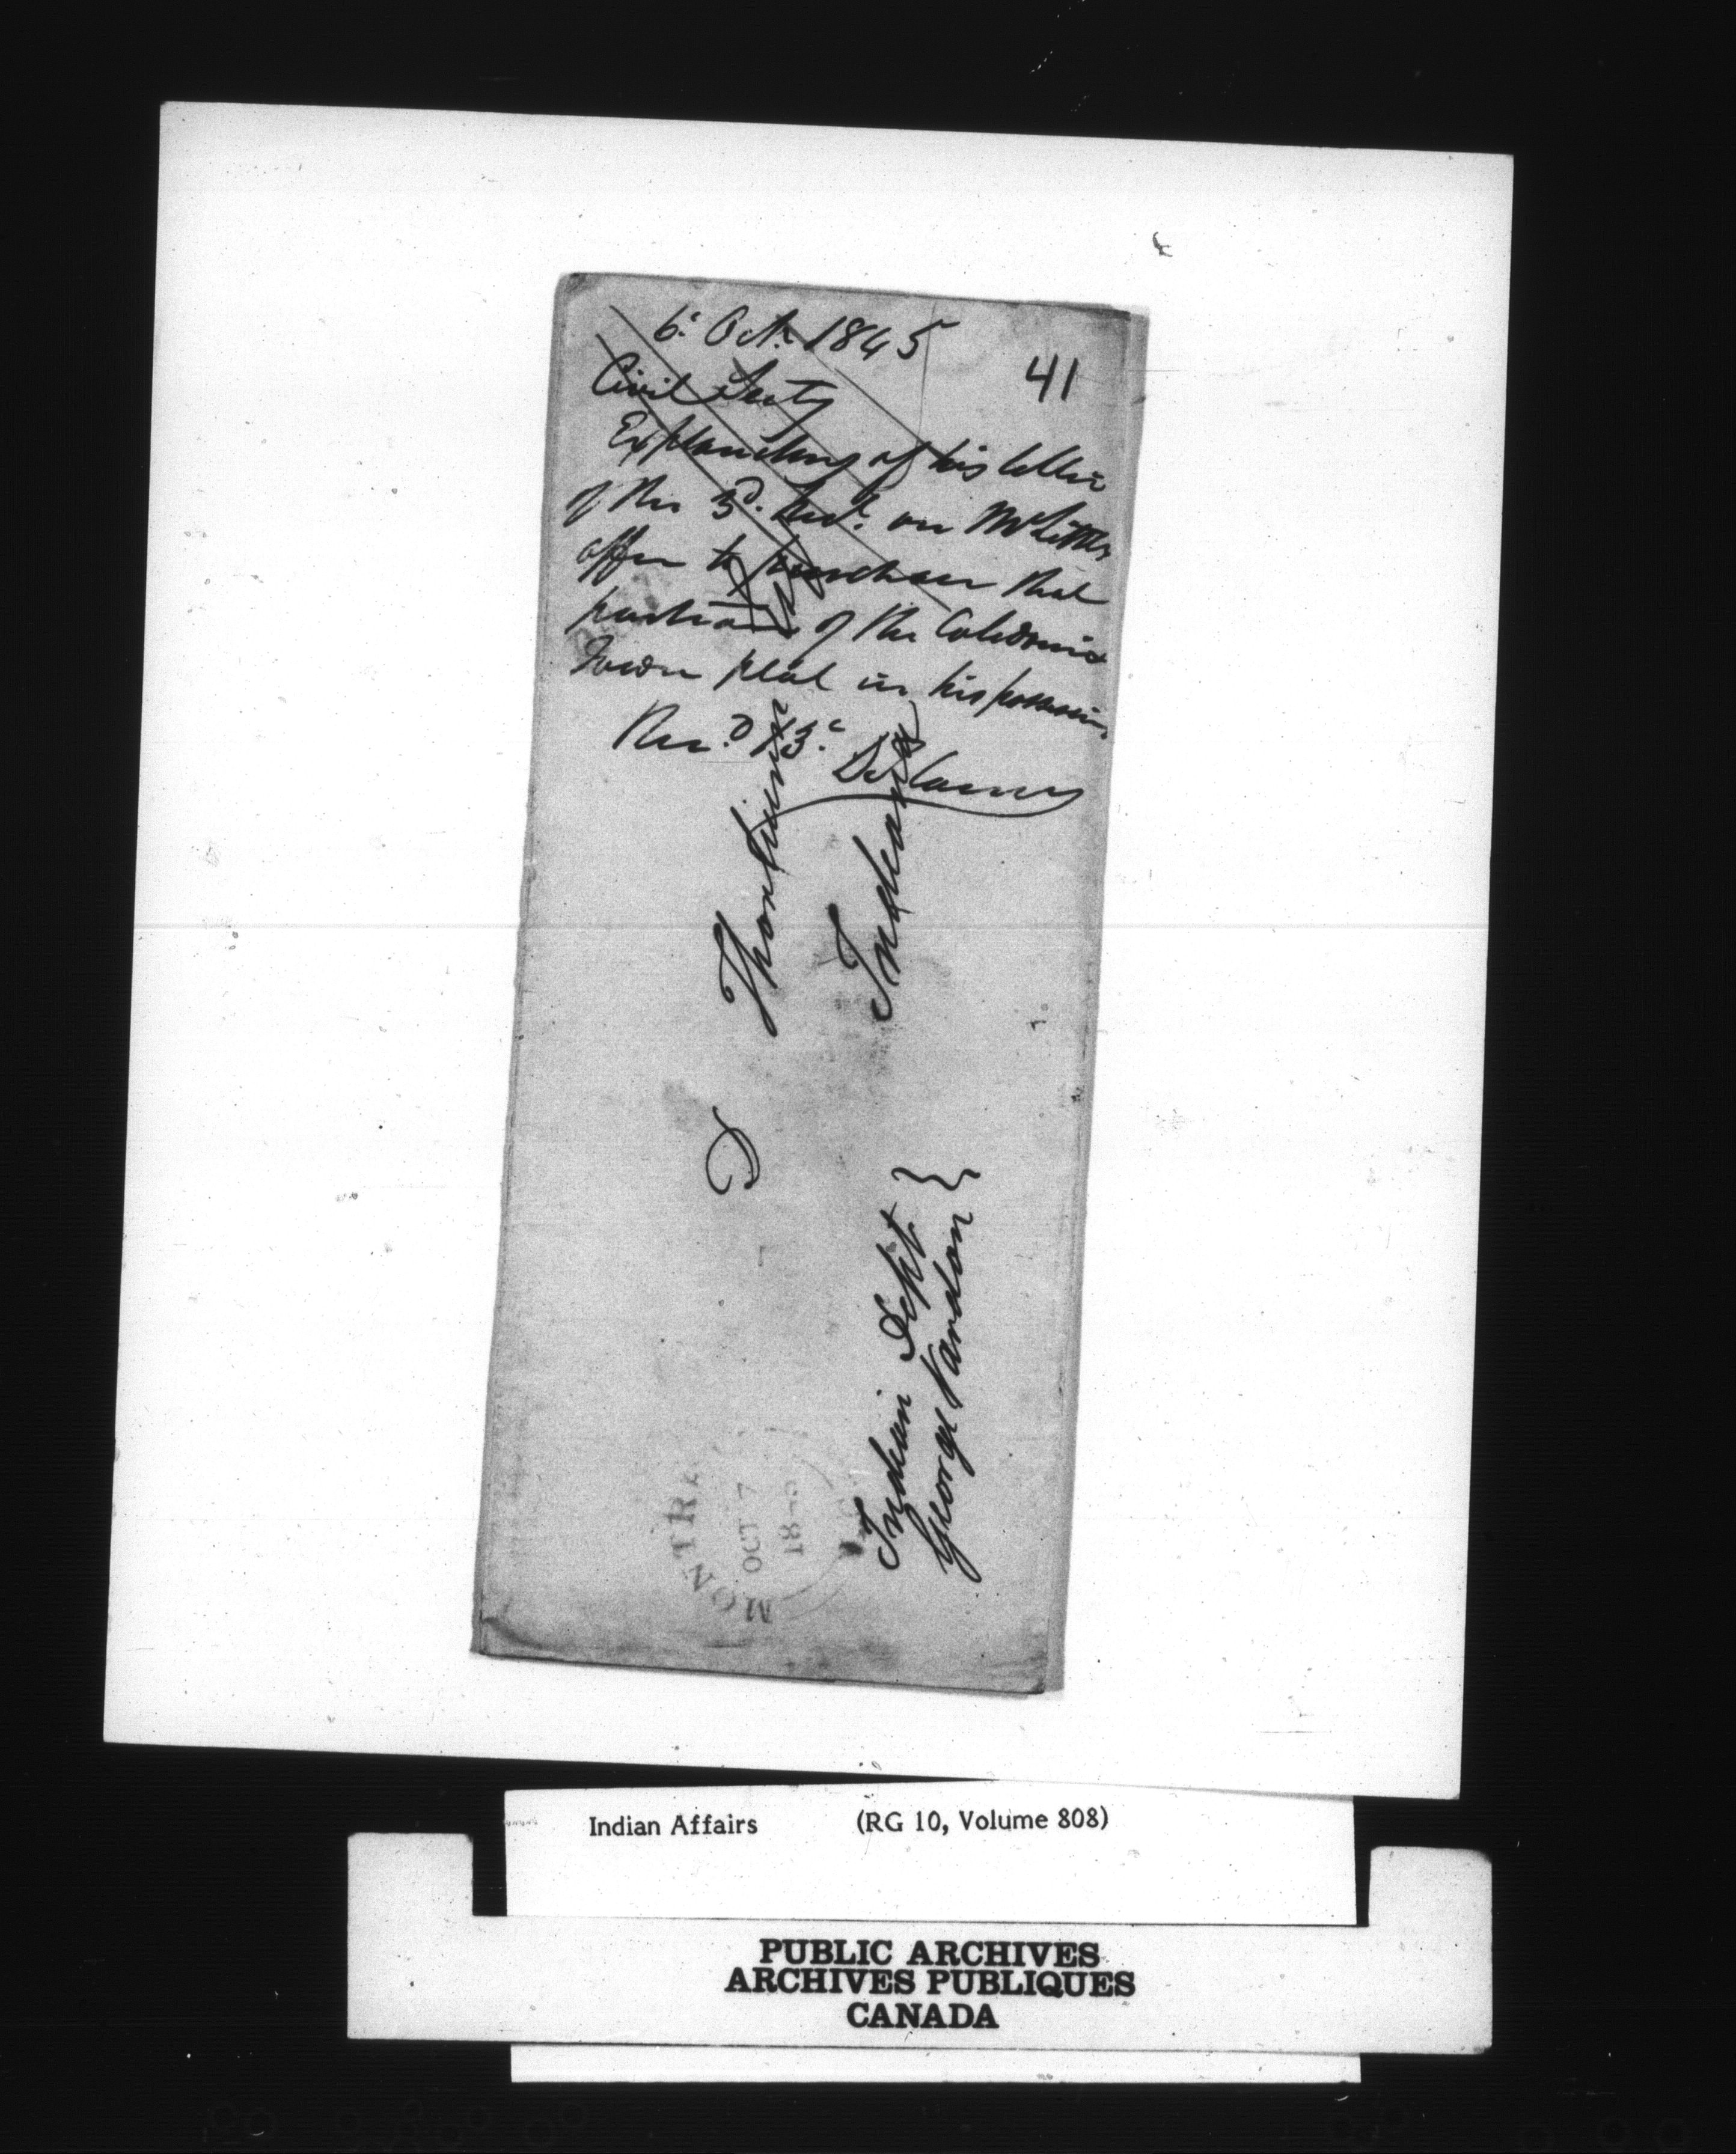 6th Octr. 1845
41
Civil Secty
Explanatory of his letter
of the 3d. Inst. on Mr Little's
offer to purchase that
portion of the Caledonia
Town plat in his possession
Rec.d 13th
D Thorburn
Indiana
Indian Dept }
George Vardon }
MONTREA
OCT 7
18
Indian Affairs (RG 10, Volume 808)
PUBLIC ARCHIVES
ARCHIVES PUBLIQUES
CANADA